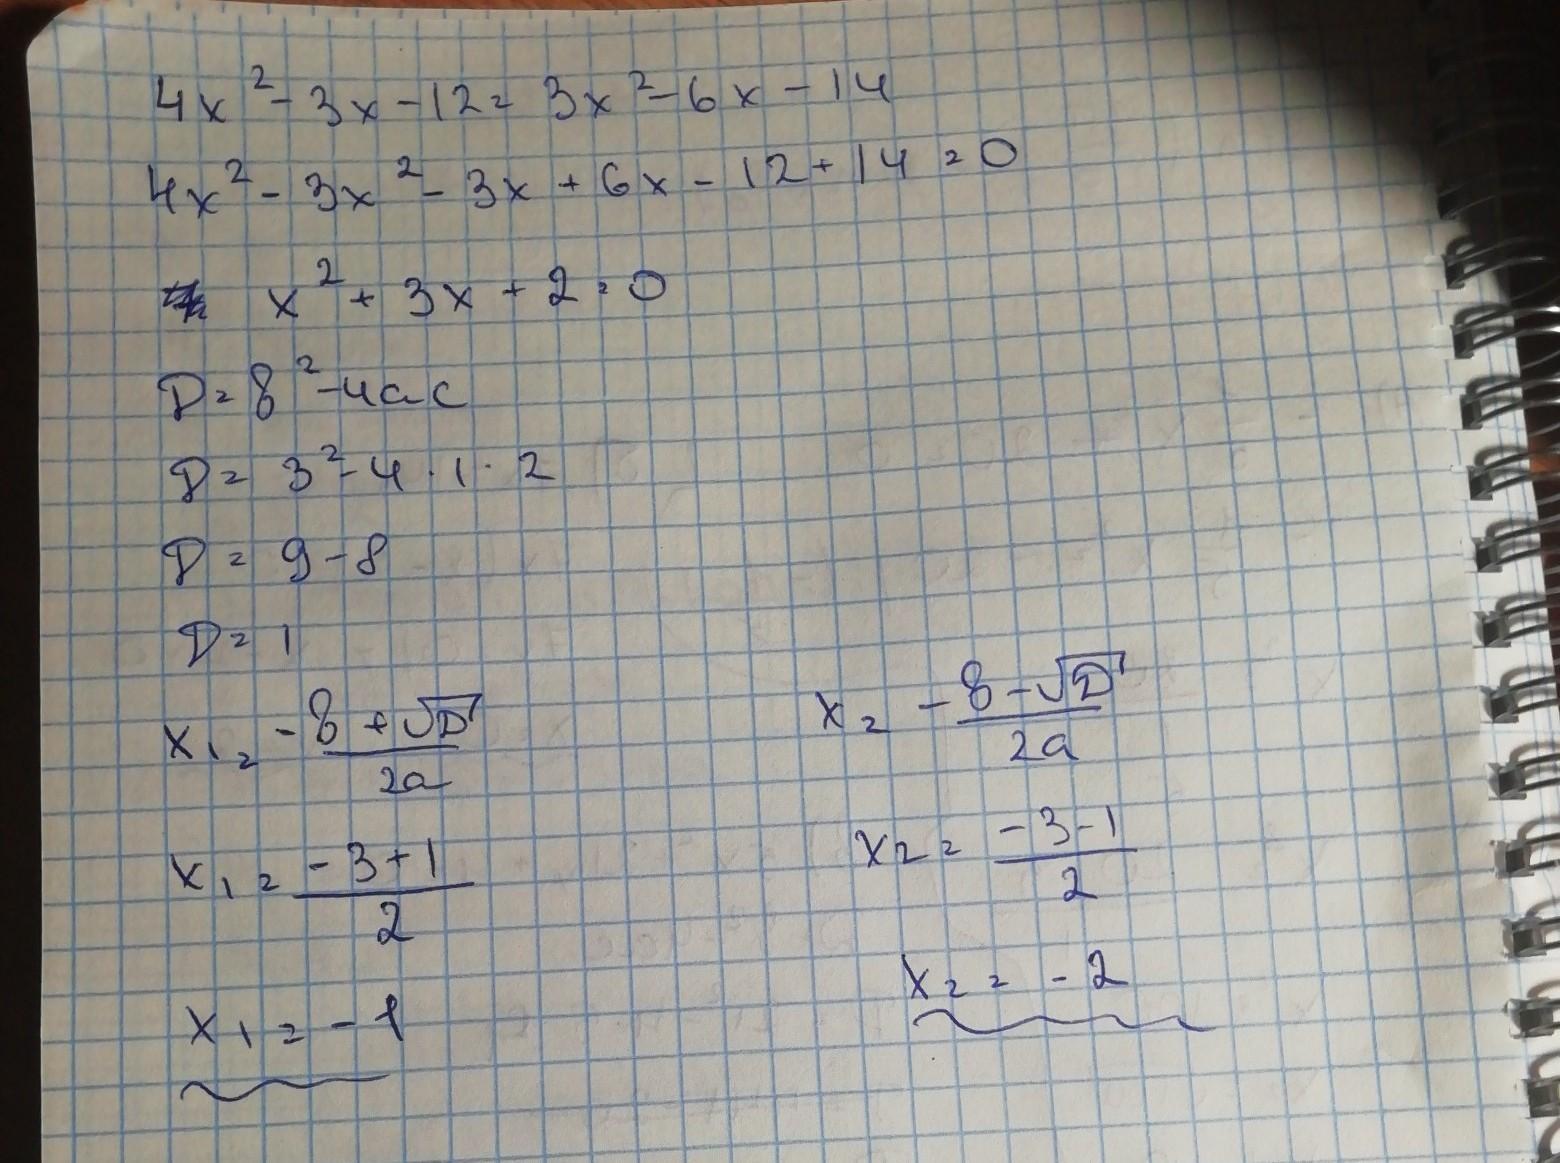 4x² - 3x - 12 = 3x² - 6x - 14
4x² - 3x² - 3x + 6x - 12 + 14 = 0
x² + 3x + 2 = 0
D = b² - 4ac
D = 3² - 4 · 1 · 2
D = 9 - 8
D = 1
x₁ = -b + √D / 2a
x₂ - b - √D / 2a
x₁ = -3 + 1 / 2
x₂ = -3 - 1 / 2
x₁ = -1
x₂ = -2